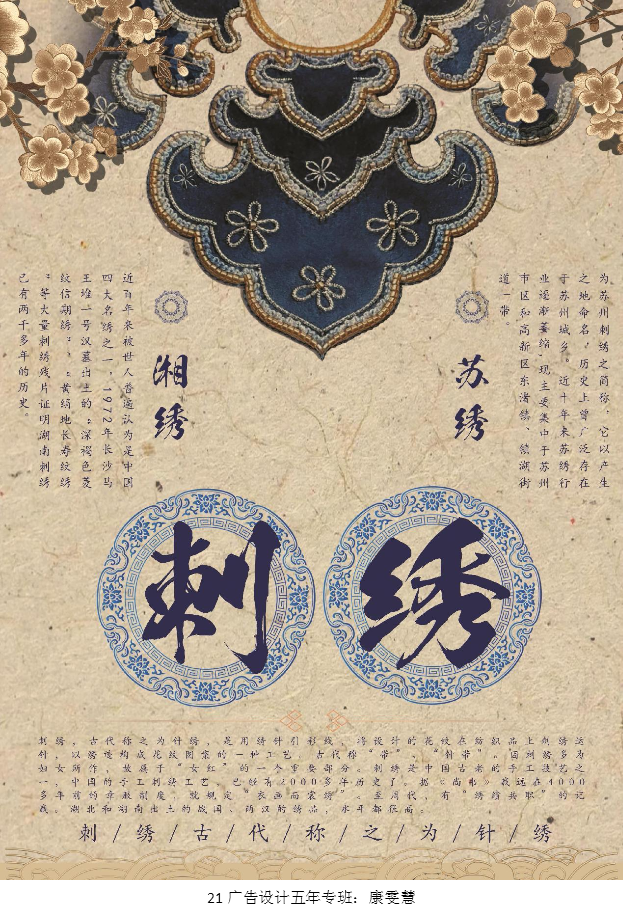 为苏州刺绣之简称，它以产生
之地命名。历史上曾广泛存在
于苏州城乡。近十年来苏绣行
业逐渐萎缩，现主要集中于苏州
市区和高新区东渚镇、镇湖街
道一带。
苏绣
湘绣
近百年来被世人普遍认为是中国
四大名绣之一，1972年长沙马
王堆一号汉墓出土的“深褐色菱
纹信期绣”、“黄绢地长寿纹绣
”等大量刺绣残片证明湖南刺绣
已有两千多年的历史
刺绣
刺绣，古代称之为针绣，是用绣针引彩线，将设计的花纹在纺织品上刺绣运
针，以绣迹构成花纹图案的一种工艺。古代称“黹”、“针黹”。因刺绣多为
妇女所作，故属于“女红”的一个重要部分。刺绣是中国古老的手工技艺之
一，中国的手工刺绣工艺，已经有2000多年历史了。据《尚书》载远在4000
多年前的章服制度，就规定“衣画而裳绣”。至周代，有“绣缋共职”的记
载。湖北和湖南出土的战国、两汉的绣品，水平都很高。
刺/绣/古/代/称/之/为/针/绣
21广告设计五年专班：康雯慧